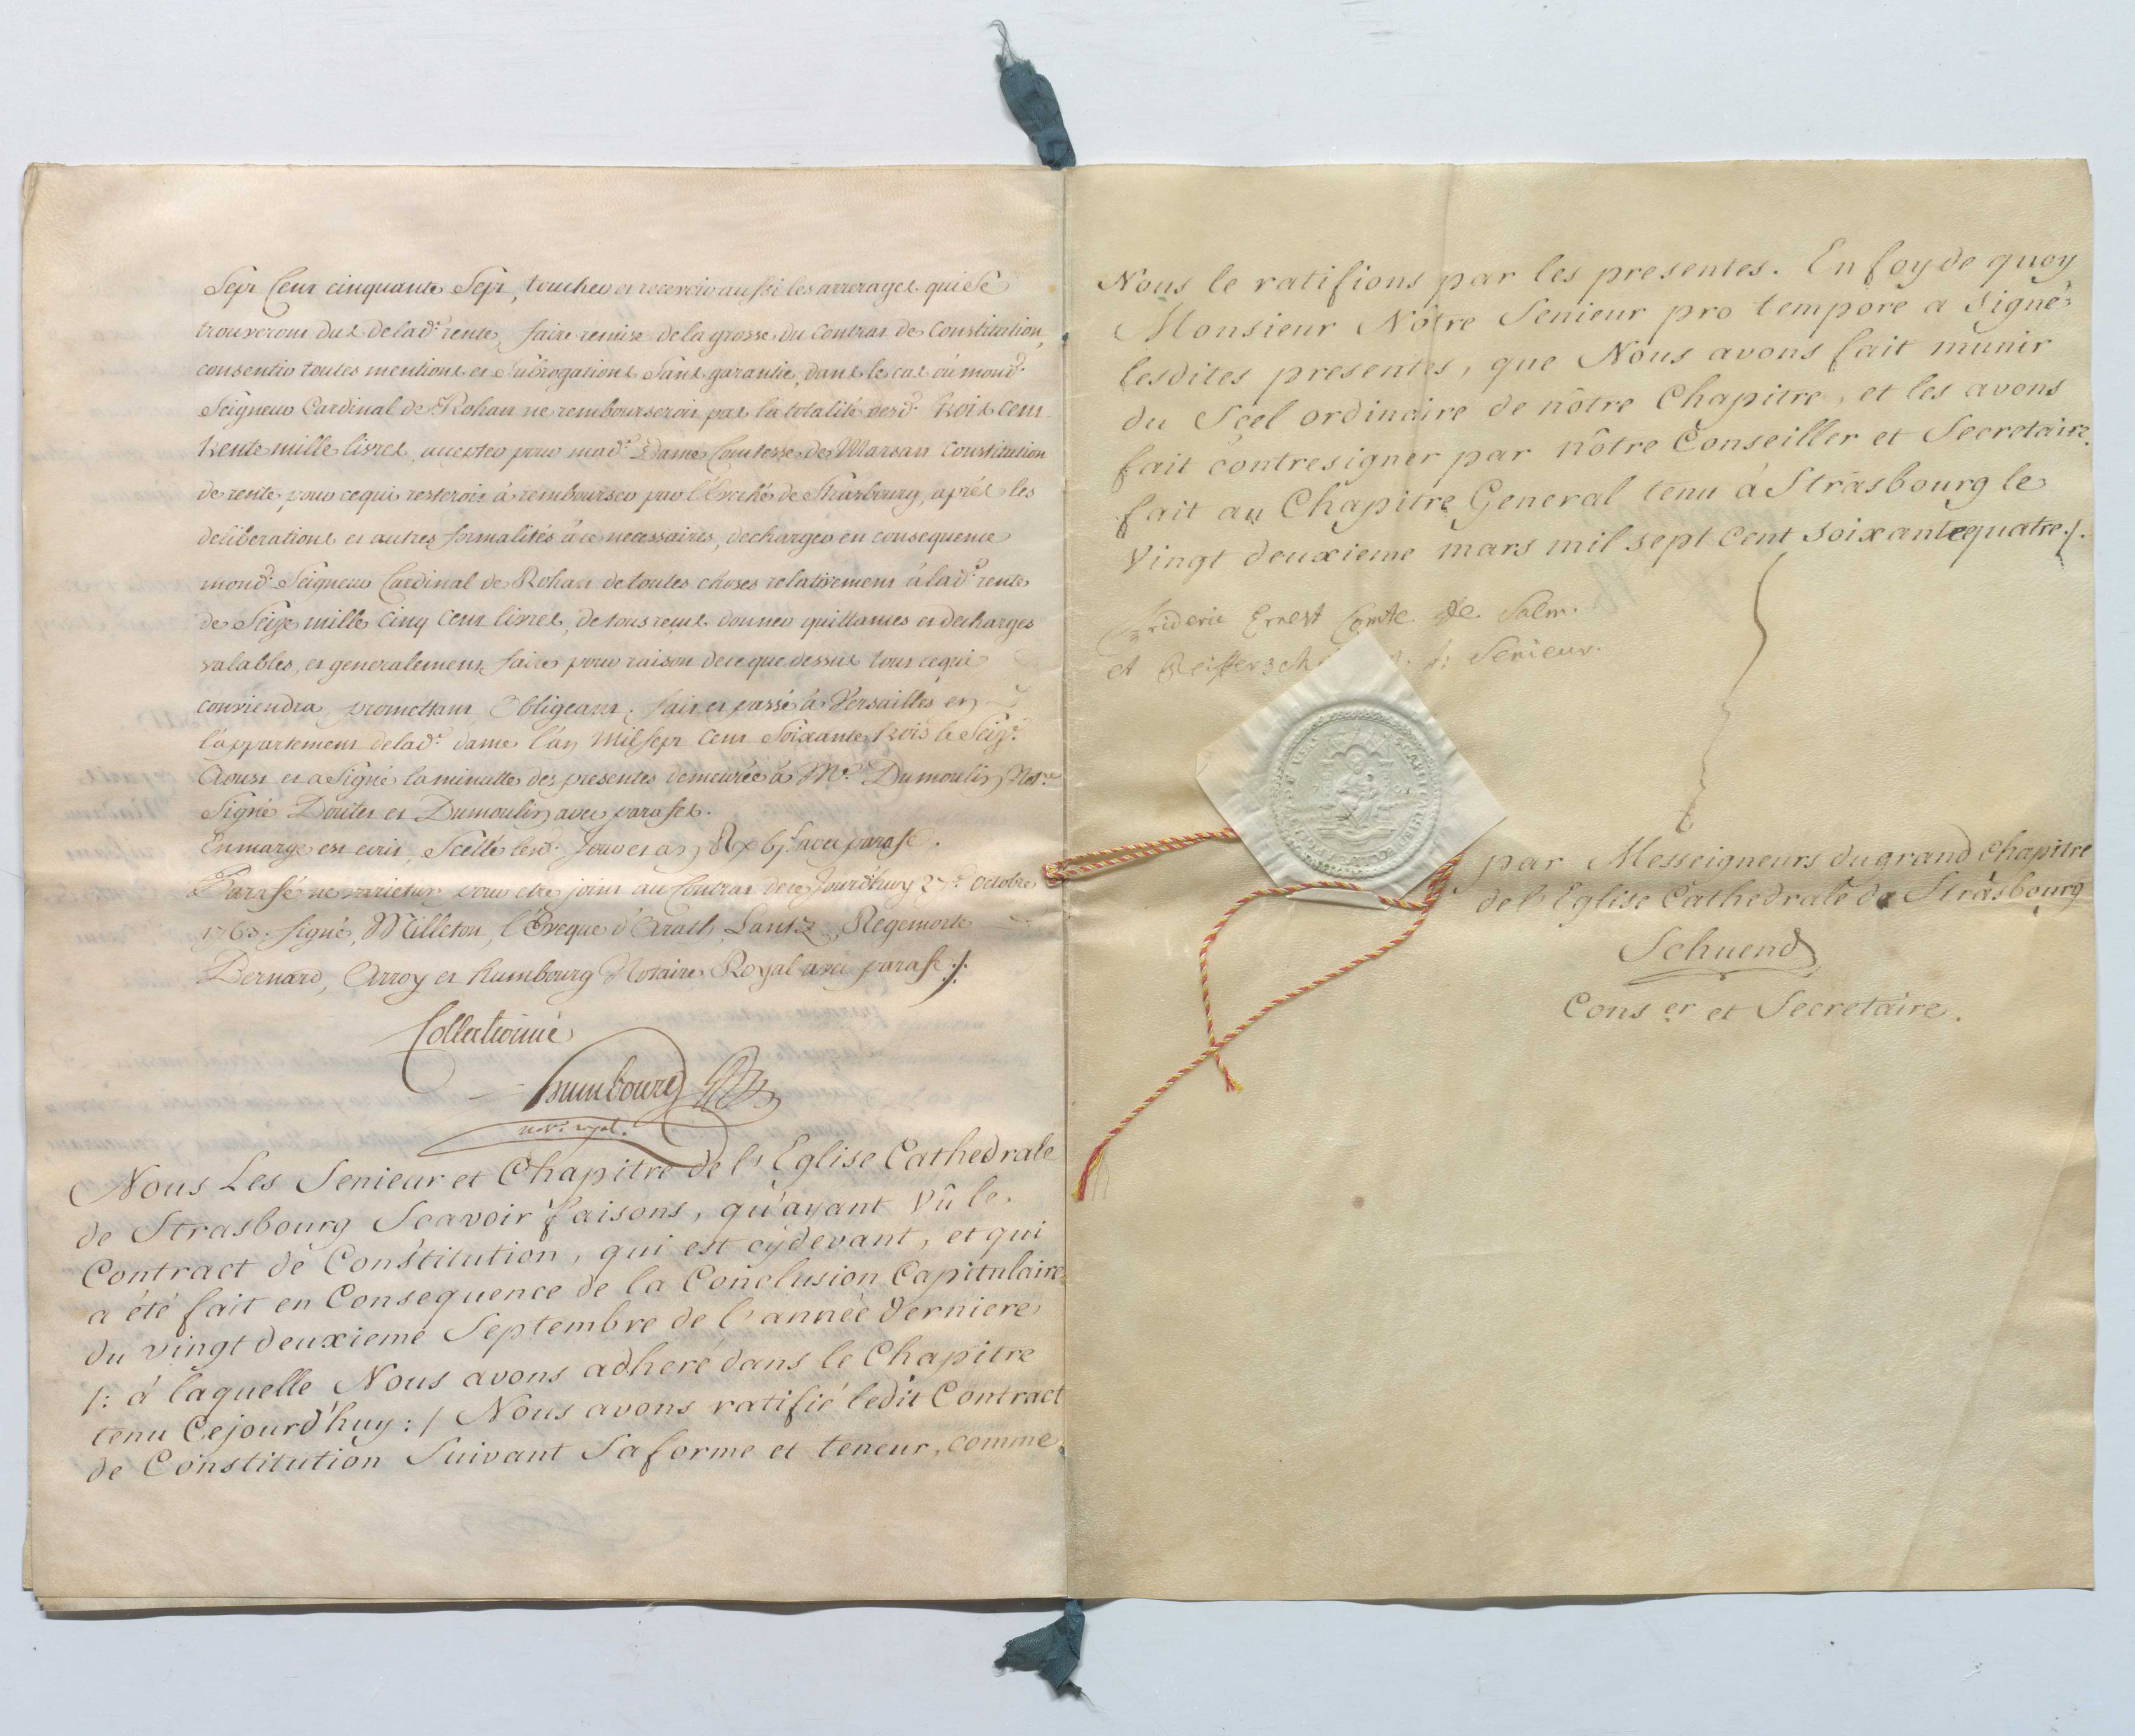 Sept Cent cinquante Sept, toucher et recevoir aussi les arrerages qui Se
trouveront dus de lad.e rente, faire remise de la grosse du Contrat de Constitution,
consentir toutes mentions et Subrogations Sans garantie, dans le cas où mond.
Seigneur Cardinal de Rohan ne rembourseroit pas la totalité desd. trois cent
trente mille livres, accepter pour mad.e Dame Comtesse de Marsan Constitution
de rente, pour ce qui resteroit à rembourser par l'Evêché de Strasbourg, après les
deliberations et autres formalités à ce necessaires, decharger en consequence
mond. Seigneur Cardinal de Rohan de toutes choses relativement à lad.e rente
de Seize mille Cinq Cent livres, de tous reçus donner quittances et decharges
valables, et generalement faire pour raison de ce que dessus tout ce qui
conviendra, promettant, Obligeant, fait et passé à Versailles en
l'appartement de lad.e dame l'an Mil Sept Cent Soixante trois le Seize
Aoust et a Signé la minutte des presentes demeurée à M.e Dumoulin, Not.re
Signé Doutes et Dumoulin avec parafes.
En marge est ecrit, Scellé lesd. Jour et an avec parafe.
Parafé ne varietur pour etre joint au Contrat de ce Jourd'huy 27.e Octobre
1763. Signé, Milleton, l'Eveque d'Arath, Lantz, Regemorte
Bernard, Arroy et Humbourg Notaire Royal avec parafe ./.
Collationné
Humbourg
not.re royal.
Nous Les Senieur et Chapitre de l'Eglise Cathedrale
de Strasbourg Scavoir faisons, qu'ayant Vû le
Contract de Constitution, qui est cydevant, et qui
a été fait en Consequence de la Conclusion Capitulaire
du vingt deuxieme Septembre de l'année derniere
/: à laquelle Nous avons adheré dans le Chapitre
tenu Cejourd'huy :/ Nous avons ratifié ledit Contract
de Constitution Suivant Sa forme et teneur, comme
Nous le ratifions par les presentes. En foy de quoy
Monsieur Nôtre Senieur pro tempore a signé
lesdites presentes, que Nous avons fait munir
du Scel ordinaire de nôtre Chapitre, et les avons
fait contresigner par nôtre Conseiller et Secretaire.
fait au Chapitre General tenu à Strasbourg le
Vingt deuxieme mars mil sept Cent soixante quatre ./.
Frideric Ernest Comte de Salm.
et Senieur.
par Messeigneurs du grand Chapitre
de l'Eglise Cathedrale de Strasbourg
Schuend
Cons er et Secretaire.